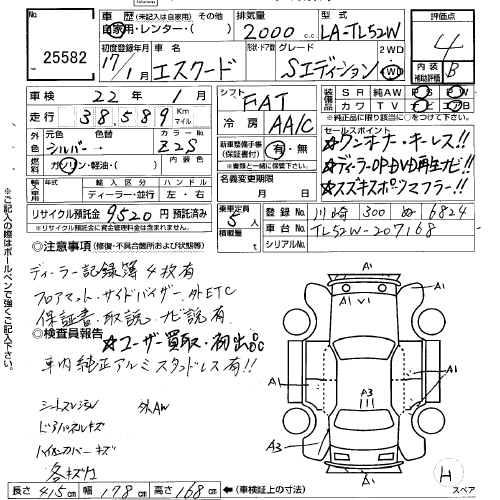 25582
車歴 (未記入は自家用) その他
自家用・レンター・( )
排気量
2000 c.c
型式
LA-TL52W
評価点
4
初度登録年月
17年 1月
車名
エスクード
形状・ドア数
グレード
Sエディション
2WD
4WD
内装
補助評価
B
車検 22年 1月
シフト
FAT
装備品
SR 純AW PS PW
カワ TV ナビ エアB
※純正品に限り(6箇所)に○をつけて下さい。
走行 38,589 Km マイル
冷房
AA/C
外色
元色 色替
シルバー →
カラーNo.
Z2S
新車整備手帳
(保証書付)
有・無
(※書類と一緒に保管して下さい。)
セールスポイント
☆ワンオーナ・キーレス!!
☆ディーラーOP・DVD再生ナビ!!
☆スズキスポーツマフラー!!
燃料
ガソリン・軽油・( )
内装色
名義変更期限
月 日
輸入車専用
年式
年
輸入区分
ディーラー・並行
ハンドル
左・右
リサイクル預託金 9520円 預託済み
※リサイクル預託金に資金管理料金は含まれます。
乗車定員
5人
積載量
t
登録No 川崎 300 ぬ 6824
車台No TL52W-207168
シリアルNo
※ご記入の際はボールペンで強くご記入下さい。
◎注意事項 (修復・不具合箇所および状態)
ディーラー記録簿4枚有
フロアマット・サイドバイザー・外ETC
保証書・取説・ナビ説有
◎検査員報告
☆ユーザー買取・初出品
車内純正アルミスタッドレス有!!
外AW
各キズ有
A1
A1 V1
A1
A1
A3
A3
A1
H
スペア
長さ 415cm 幅 178cm 高さ 168cm ←(車検証上の寸法)